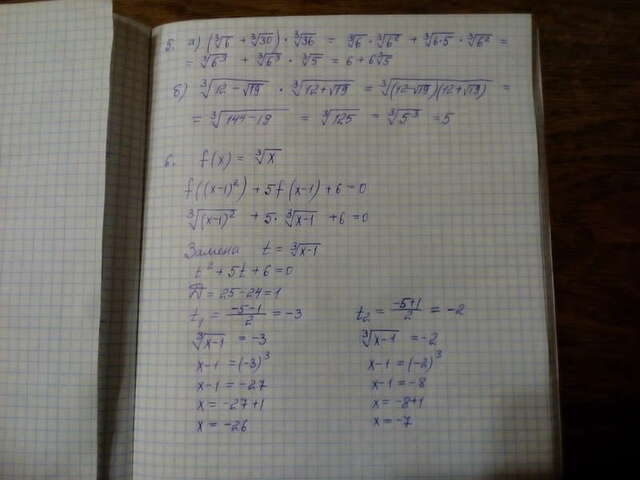 5. а) (∛6 + ∛30) · ∛36 = ∛6 · ∛6² + ∛6·5 · ∛6² =
= ∛6³ + ∛6³ · ∛5 = 6 + 6∛5
б) ∛12 - √19 · ∛12 + √19 = ∛(12-√19)(12+√19) =
= ∛144 - 19 = ∛125 = ∛5³ = 5
6. f(x) = ∛x
f((x-1)²) + 5f(x-1) + 6 = 0
∛(x-1)² + 5 · ∛x-1 + 6 = 0
Замена t = ∛x-1
t² + 5t + 6 = 0
D = 25 - 24 = 1
t₁ = -5-1/2 = -3
∛x-1 = -3
x-1 = (-3)³
x-1 = -27
x = -27+1
x = -26
t₂ = -5+1/2 = -2
∛x-1 = -2
x-1 = (-2)³
x-1 = -8
x = -8+1
x = -7